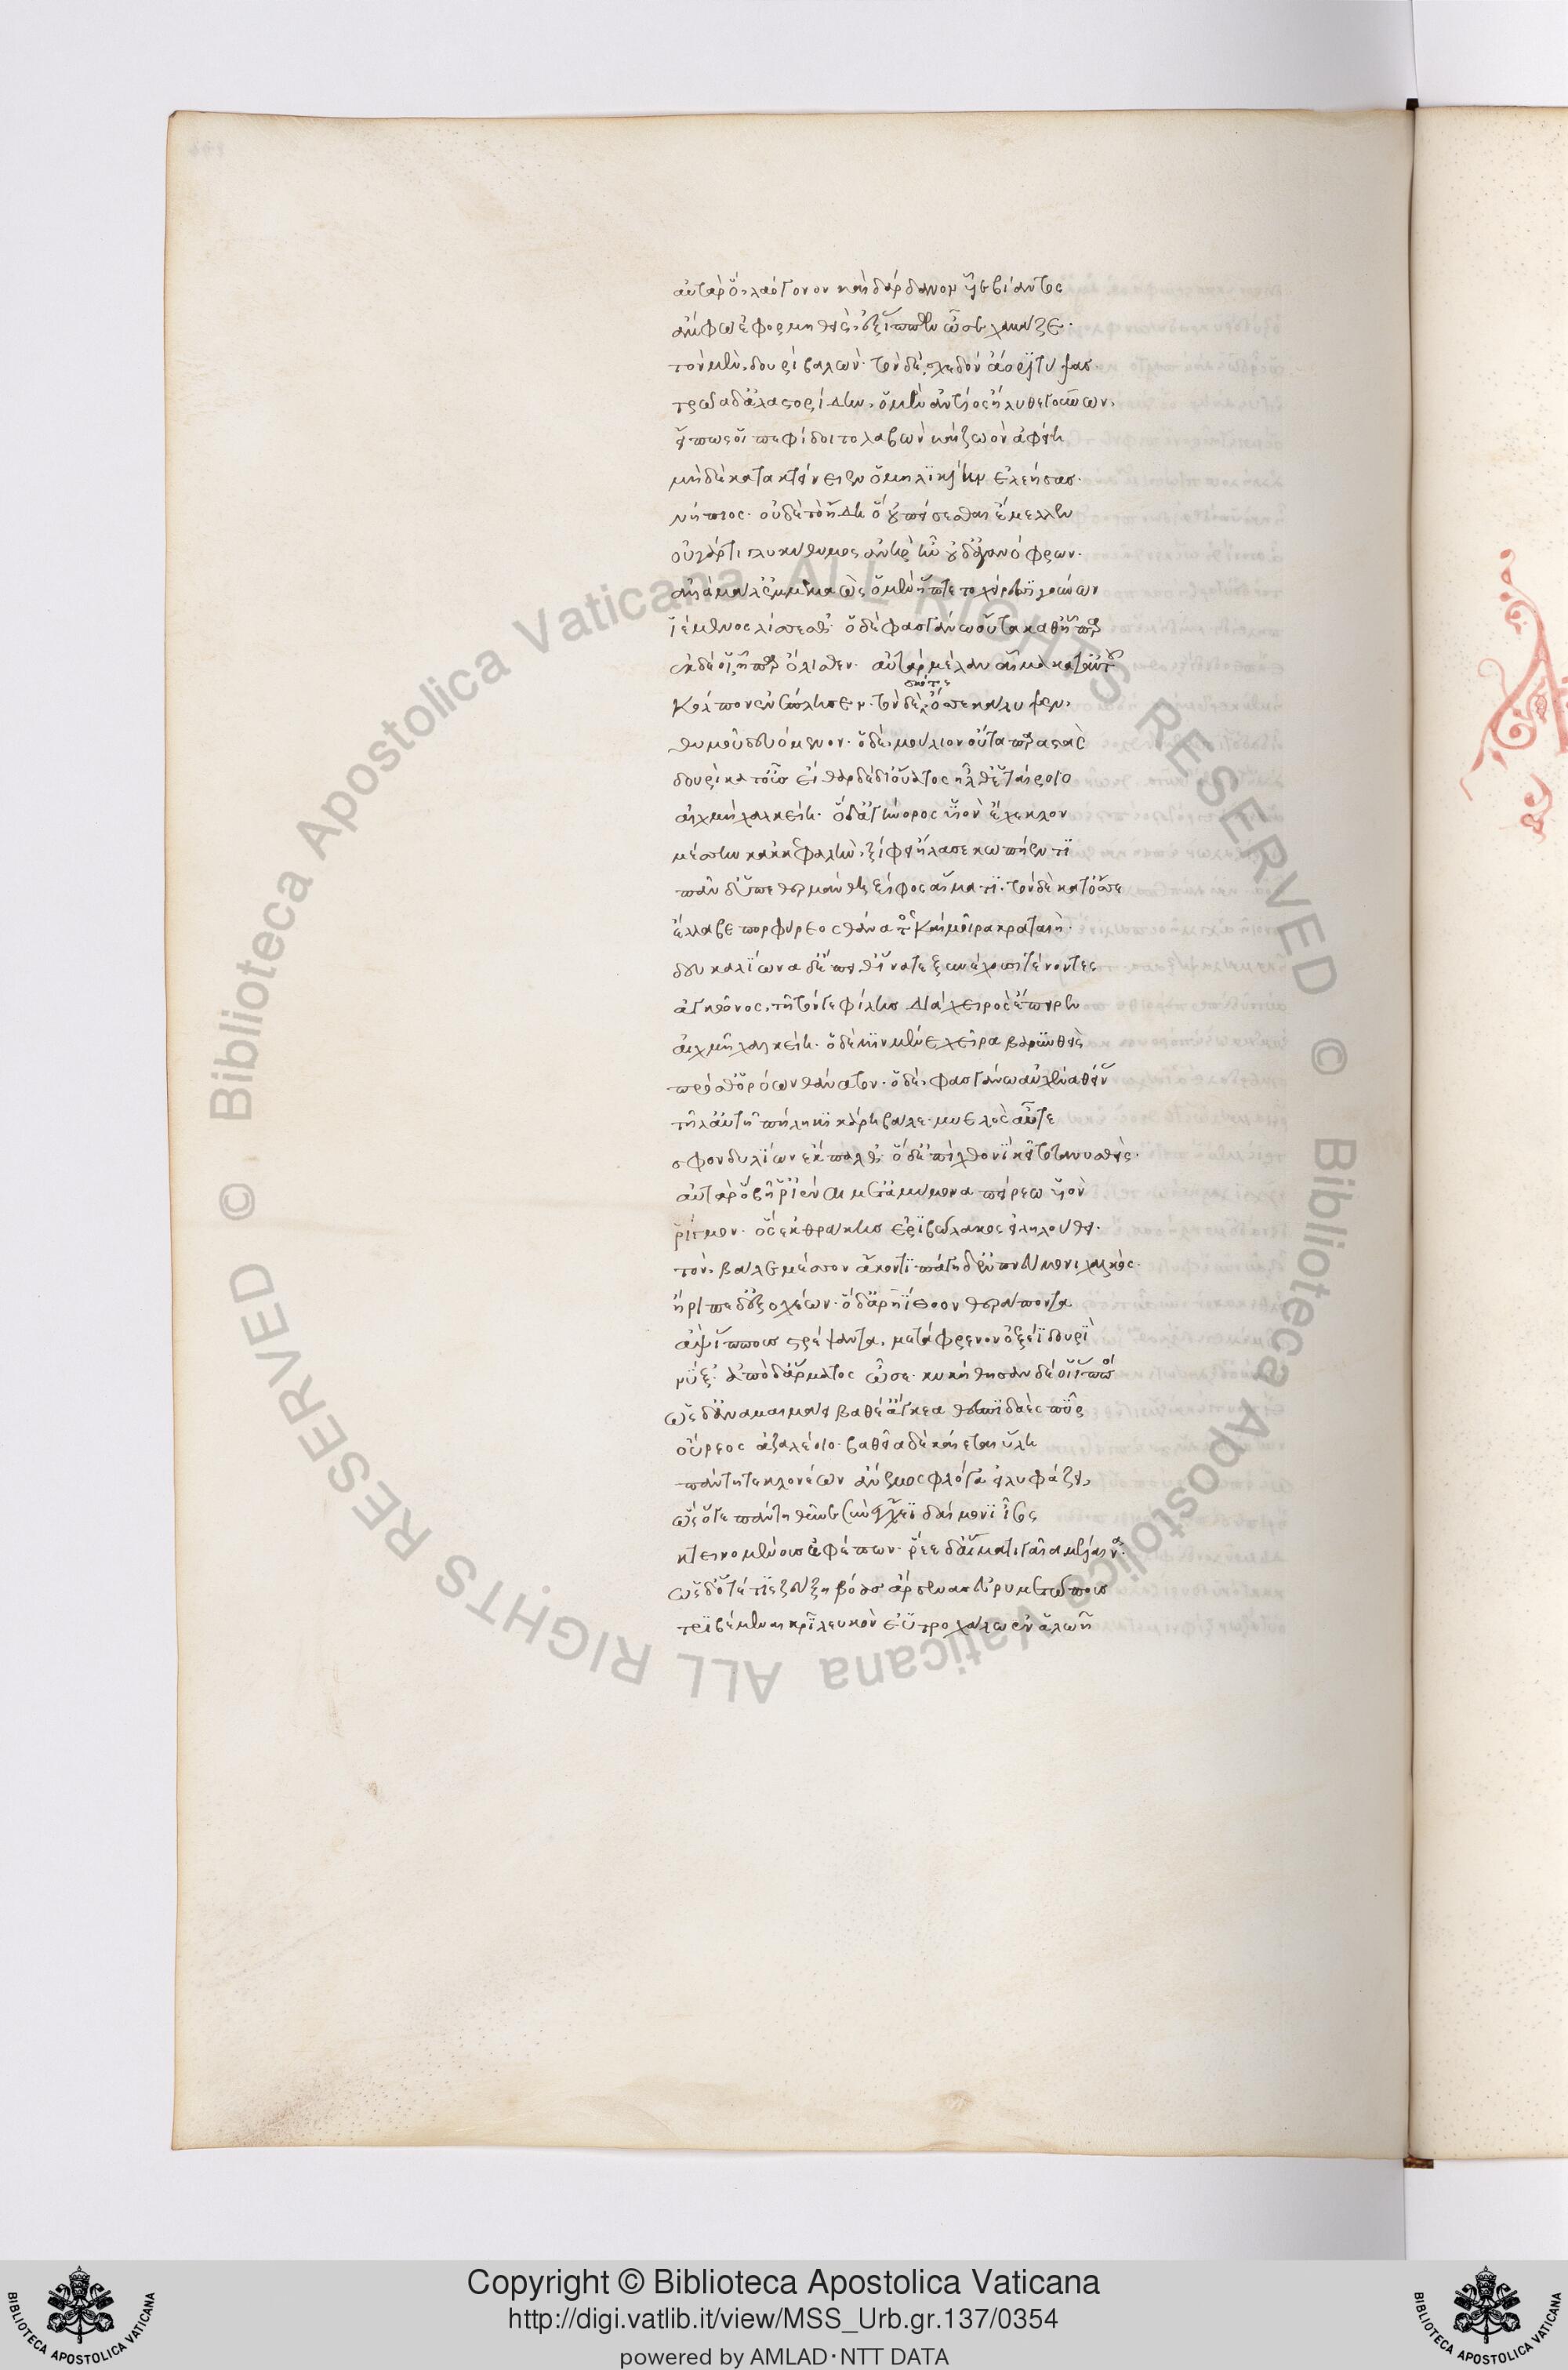 αὐτὰρ ὁ, λαόγονον καὶ δάρδανον ὗιε βίαντος
ἄμφω ἐφορμηθεὶς, ἐξ ἵππων ὦσε χαμᾶζε·
τὸν μὲν, δουρὶ βαλὼν· τὸν δὲ, σχεδὸν ἄορι τύψας·
τρῶα δ' ἀλαστορίδην, ὁ μὲν ἀντίος ἤλυθε γούνων,
εἴ πως οἱ πεφίδοιτο λαβὼν καὶ ζωὸν ἀφείη
μηδὲ κατακτείνειεν ὁμηλικίην ἐλεήσας·
νήπιος· οὐδὲ τὸ ἤδη ὃ οὐ πείσεσθαι ἔμελλεν
οὐ γάρ τι γλυκύθυμος ἀνὴρ ἦν οὐδ' ἀγανόφρων·
ἀλλὰ μάλ' ἐμμεμαὼς ὁ μὲν ἥπτετο χείρεσι γούνων
ἱέμενος λίσσεσθ'· ὁ δὲ φασγάνω οὖτα καθ' ἧπαρ
ἐκ δέ οἱ ἧπαρ ὄλισθεν· αὐτὰρ μέλαν αἷμα κατ' αὐτοῦ
κόλπον ἐνέπλησεν· τὸν δὲ σκότος ὄσσε κάλυψεν,
θυμοῦ δευόμενον· ὁ δὲ, μούλιον οὖτα παραστὰς
δουρὶ κατ' οὖς· εἶθαρ δὲ δι' οὔατος ἦλθ' ἑτέροιο
αἰχμὴ χαλκείη· ὁ δ' ἀγήνορος υἱὸν ἔχεκλον
μέσσην κακκεφαλὴν, ξίφει ἤλασε κωπήεντι
πᾶν δ' ὑπεθερμάνθη ξίφος αἵματι· τὸν δὲ κατ' ὄσσε
ἔλλαβε πορφύρεος θάνατος καὶ μοῖρα κραταιὴ·
δευκαλίωνα δ' ἔπειθ' ἵνα τε ξυνέχουσι τένοντες
ἀγκῶνος, τῇ τόν γε φίλης διὰ χειρὸς ἔπειρεν
αἰχμῇ χαλκείῃ· ὁ δέ μιν μένε χεῖρα βαρυνθεὶς
πρόσθ' ὁρόων θάνατον· ὁ δὲ, φασγάνω αὐχένα θείνων
τῆλ' αὐτῇ πήληκι κάρη βάλε· μυελὸς αὖτε
σφονδυλίων ἔκπαλθ'· ὁ δ' ἐπὶ χθονὶ κεῖτο τανυσθείς·
αὐτὰρ ὁ βῆ ῥ' ἰέναι μετ' ἀμύμονα πείρεω υἱὸν
ῥίγμον· ὃς ἐκ θρήκης ἐριβώλακος εἰληλούθει·
τὸν, βάλε μέσσον ἄκοντι· πάγη δ' ἐν πνεύμονι χαλκὸς·
ἤριπε δ' ἐξ ὀχέων· ὁ δ' ἀρηΐθοον θεράποντα
ἂψ ἵππους στρέψαντα, μετάφρενον ὀξέϊ δουρὶ
νύξ'· ἀπὸ δ' ἅρματος ὦσε· κυκήθησαν δέ οἱ ἵπποι
ὡς δ' ἀναμαιμάει βαθέ' ἄγκεα θεσπιδαὲς πῦρ
οὔρεος ἀζαλέοιο· βαθεῖα δὲ καίεται ὕλη
πάντη τε κλονέων ἄνεμος φλόγα εἰλυφάζει,
ὣς ὅγε πάντη θῦνε σὺν ἔγχεϊ δαίμονι ἶσος
κτεινομένους ἐφέπων· ῥέε δ' αἵματι γαῖα μέλαινα·
ὡς δ' ὅτε τις ζεύξῃ βόας ἄρσενας εὐρυμετώπους
τριβέμεναι κρῖ λευκὸν ἐϋτροχάλω ἐν ἀλωῇ
Copyright © Biblioteca Apostolica Vaticana
http://digi.vatlib.it/view/MSS_Urb.gr.137/0354
powered by AMLAD·NTT DATA
© Biblioteca Apostolica Vaticana ALL RIGHTS RESERVED
© Biblioteca Apostolica Vaticana ALL RIGHTS RESERVED
BIBLIOTECA APOSTOLICA VATICANA
BIBLIOTECA APOSTOLICA VATICANA